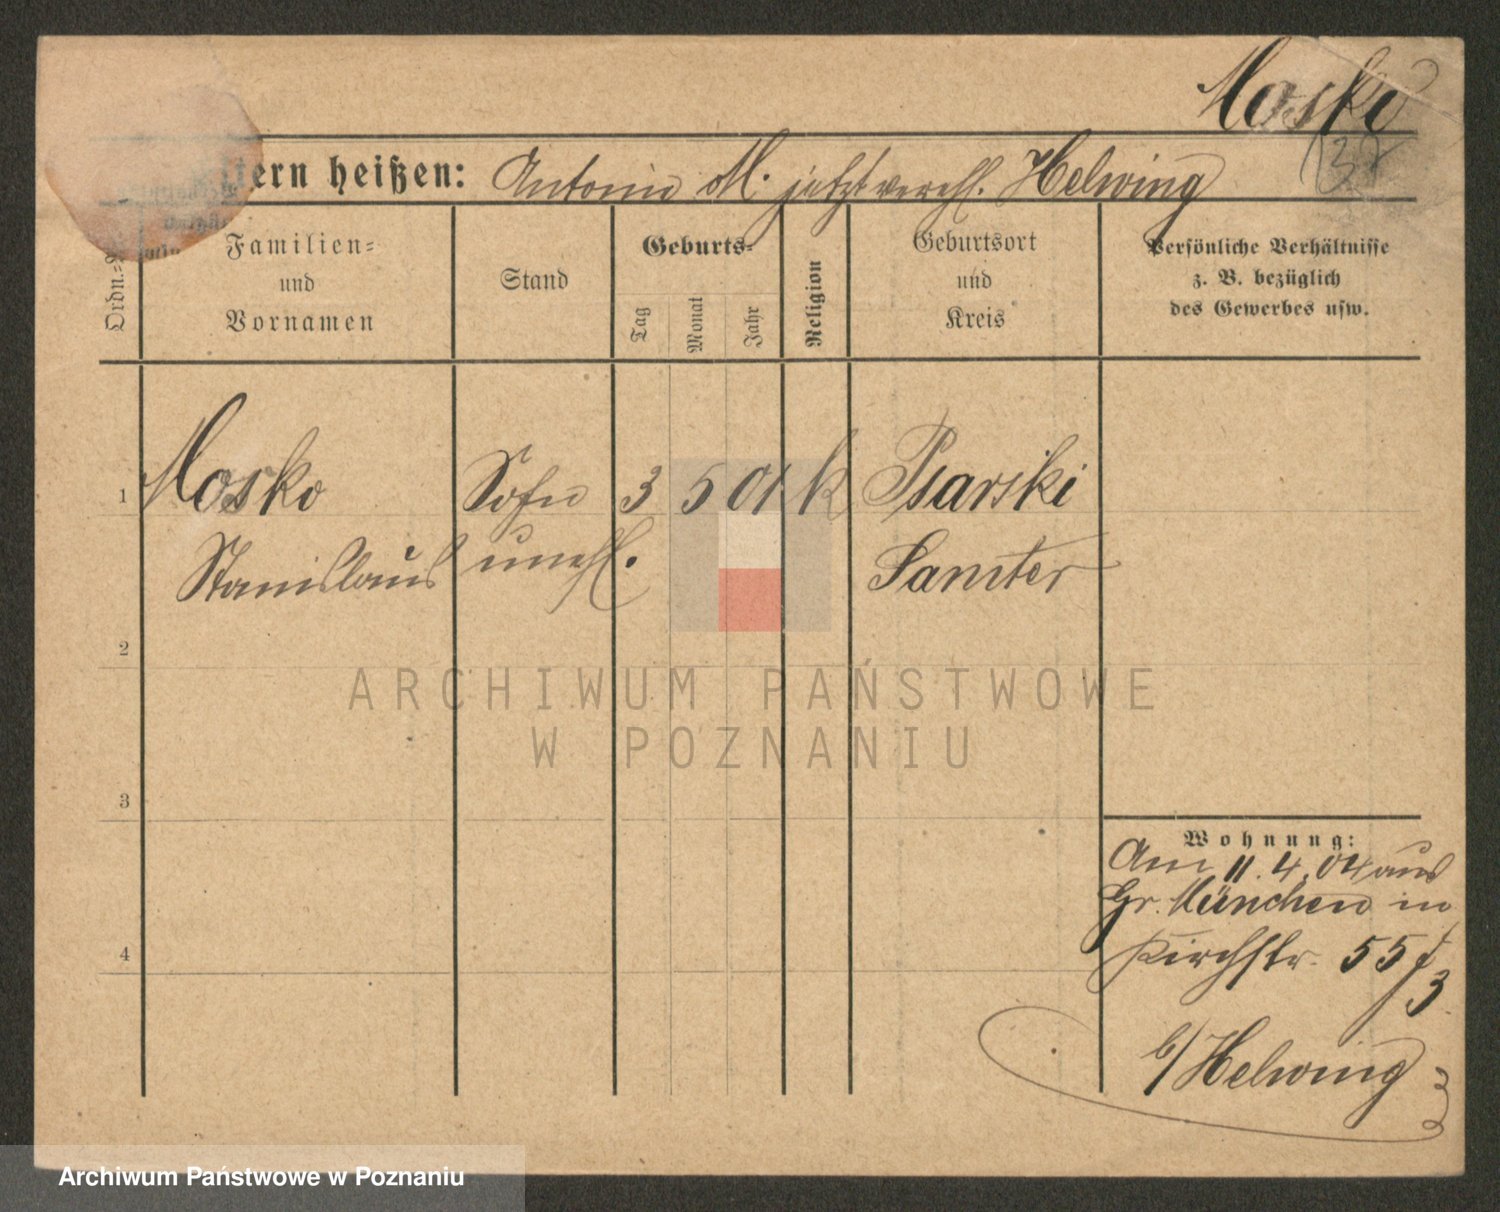 Mosko
ern heißen: Antonie M. jetzt verehl. Helwing
Ordn.=
Familien=
und
Vornamen
Stand
Geburts=
Tag
Monat
Jahr
Religion
Geburtsort
und
Kreis
Persönliche Verhältnisse
z. B. bezüglich
des Gewerbes usw.
1 Mosko Sohn 3 5 01 k Psarski
Stanislaus unehl. Samter
2
ARCHIWUM PAŃSTWOWE
W POZNANIU
3
Wohnung:
Am 11.4.04 aus
Gr. München in
4
Kirchstr. 55 f
3
b/ Helwing
Archiwum Państwowe w Poznaniu